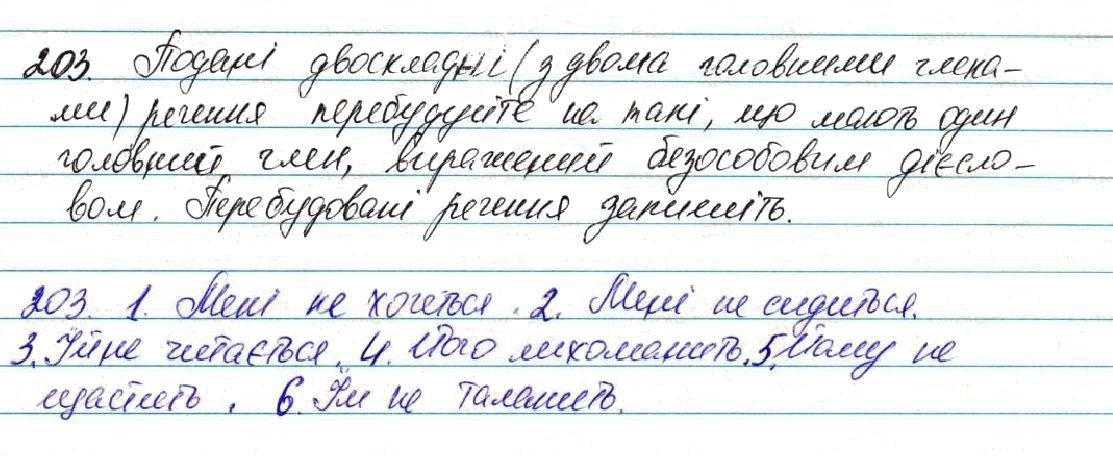 203. Подані двоскладні (з двома головними члена-
ми) речення перебудуйте на такі, що мають один
головний член, виражений безособовим дієсло-
вом. Перебудовані речення запишіть.
203. 1. Мені не хочеться. 2. Мені не сидиться.
3. Їй не читається. 4. Його лихоманить. 5. Йому не
щастить. 6. Їм не таланить.